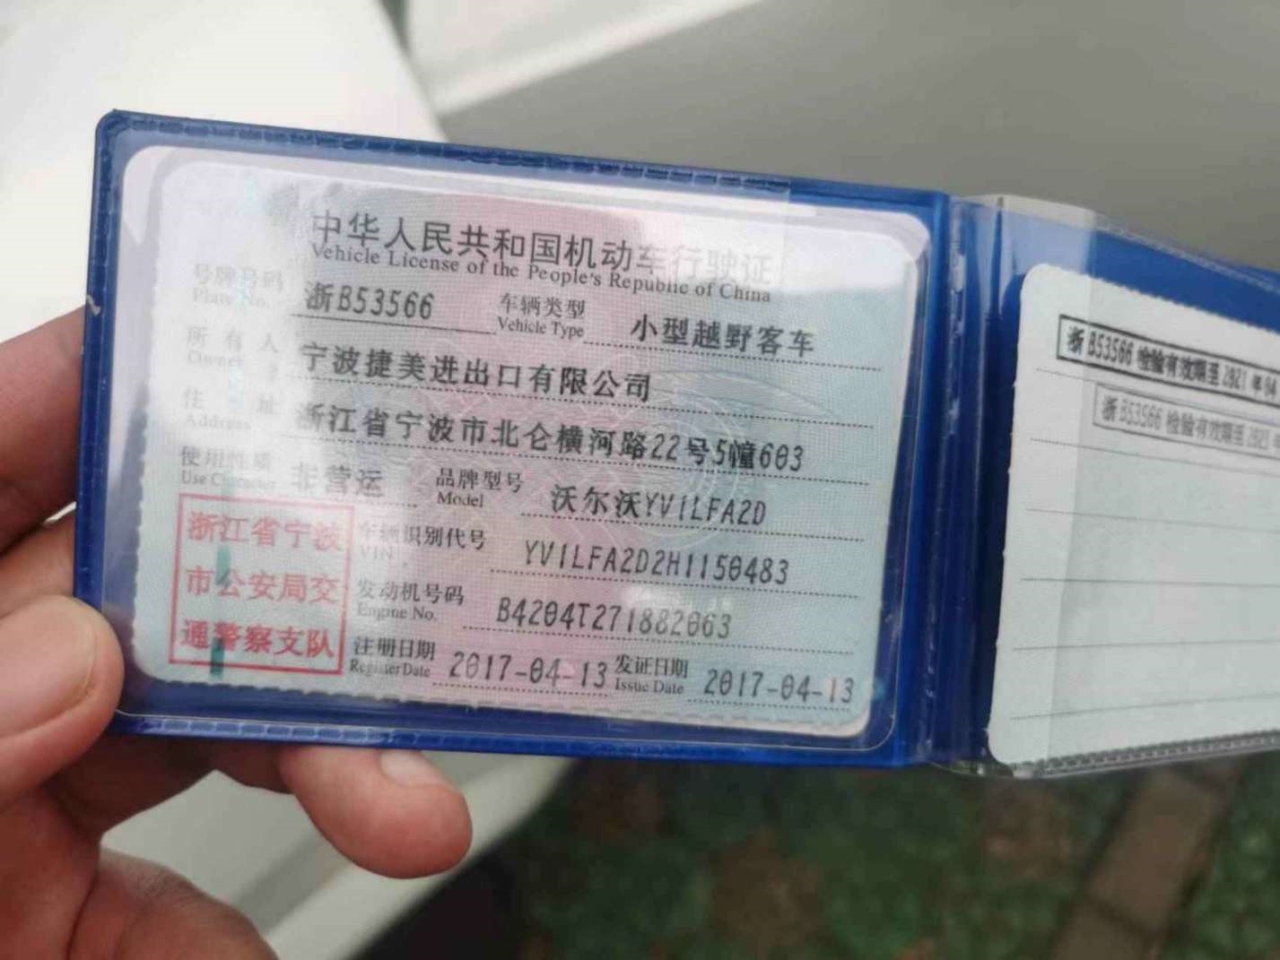 中华人民共和国机动车行驶证
Vehicle License of the People's Republic of China
号牌号码 浙B53566 车辆类型 小型越野客车
Plate No. Vehicle Type
所有人 宁波捷美进出口有限公司
Owner
住址 浙江省宁波市北仑横河路22号5幢603
Address
使用性质 非营运 品牌型号 沃尔沃YV1LFA2D
Use Character Model
浙江省宁波
市公安局交
通警察支队
车辆识别代号 YV1LFA2D2H1150483
VIN
发动机号码 B4204T271882063
Engine No.
注册日期 2017-04-13 发证日期 2017-04-13
Register Date Issue Date
浙B53566 检验有效期至 2021年04
浙B53566 检验有效期至